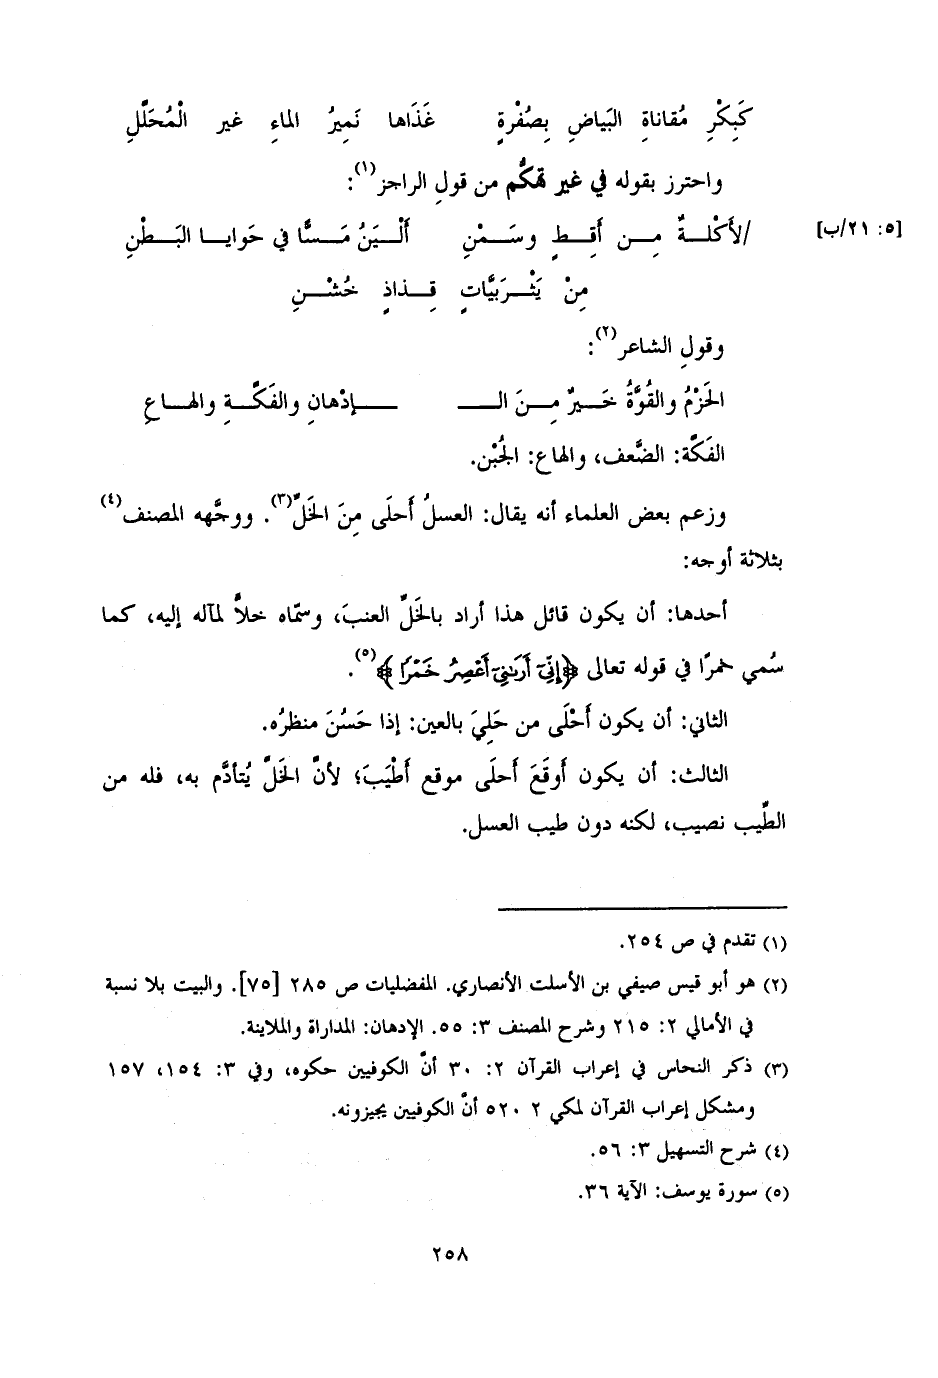 كَبِكْرِ مُقاناةِ البَياضِ بِصُفْرةٍ غَذَاها نَمِيرُ الماءِ غير الْمُحَلَّلِ
واحترز بقوله في غير تهكُّم من قولِ الراجز(١):
[٥: ٢١/ب] /لأَكْلـةٌ مـن أَقِـطٍ وسَـمْنِ أَلْـيَنُ مَـسًّا في حَوايـا البَـطْنِ
مِنْ يَثْـرَبيَّاتٍ قِـذاذٍ خُشْـنِ
وقولِ الشاعر(٢):
الحَزْمُ والقُوَّةُ خَـيرٌ مِـنَ الـ ـإدْهانِ والفَكَّـةِ والهـاعِ
الفَكّة: الضَّعف، والهاع: الجُبْن.
وزعم بعض العلماء أنه يقال: العسلُ أَحلَى مِنَ الخَلِّ(٣). ووجَّهه المصنف(٤)
بثلاثة أوجه:
أحدها: أن يكون قائل هذا أراد بالخَلِّ العنبَ، وسمّاه خلاًّ لمآله إليه، كما
سُمي خمرًا في قوله تعالى ﴿إِنِّيٓ أَرَىٰنِيٓ أَعْصِرُ خَمْرًا﴾(٥).
الثاني: أن يكون أَحْلَى من حَلِيَ بالعين: إذا حَسُنَ منظرُه.
الثالث: أن يكون أَوقَعَ أَحلَى موقع أَطْيَبَ؛ لأنَّ الخَلَّ يُتأدَّم به، فله من
الطِّيب نصيب، لكنه دون طيب العسل.
(١) تقدم في ص ٢٥٤.
(٢) هو أبو قيس صيفي بن الأسلت الأنصاري. المفضليات ص ٢٨٥ [٧٥]. والبيت بلا نسبة
في الأمالي ٢: ٢١٥ وشرح المصنف ٣: ٥٥. الإدهان: المداراة والملاينة.
(٣) ذكر النحاس في إعراب القرآن ٢: ٣٠ أنَّ الكوفيين حكوه، وفي ٣: ١٥٤، ١٥٧
ومشكل إعراب القرآن لمكي ٢ ٥٢٠ أنَّ الكوفيين يجيزونه.
(٤) شرح التسهيل ٣: ٥٦.
(٥) سورة يوسف: الآية ٣٦.
٢٥٨